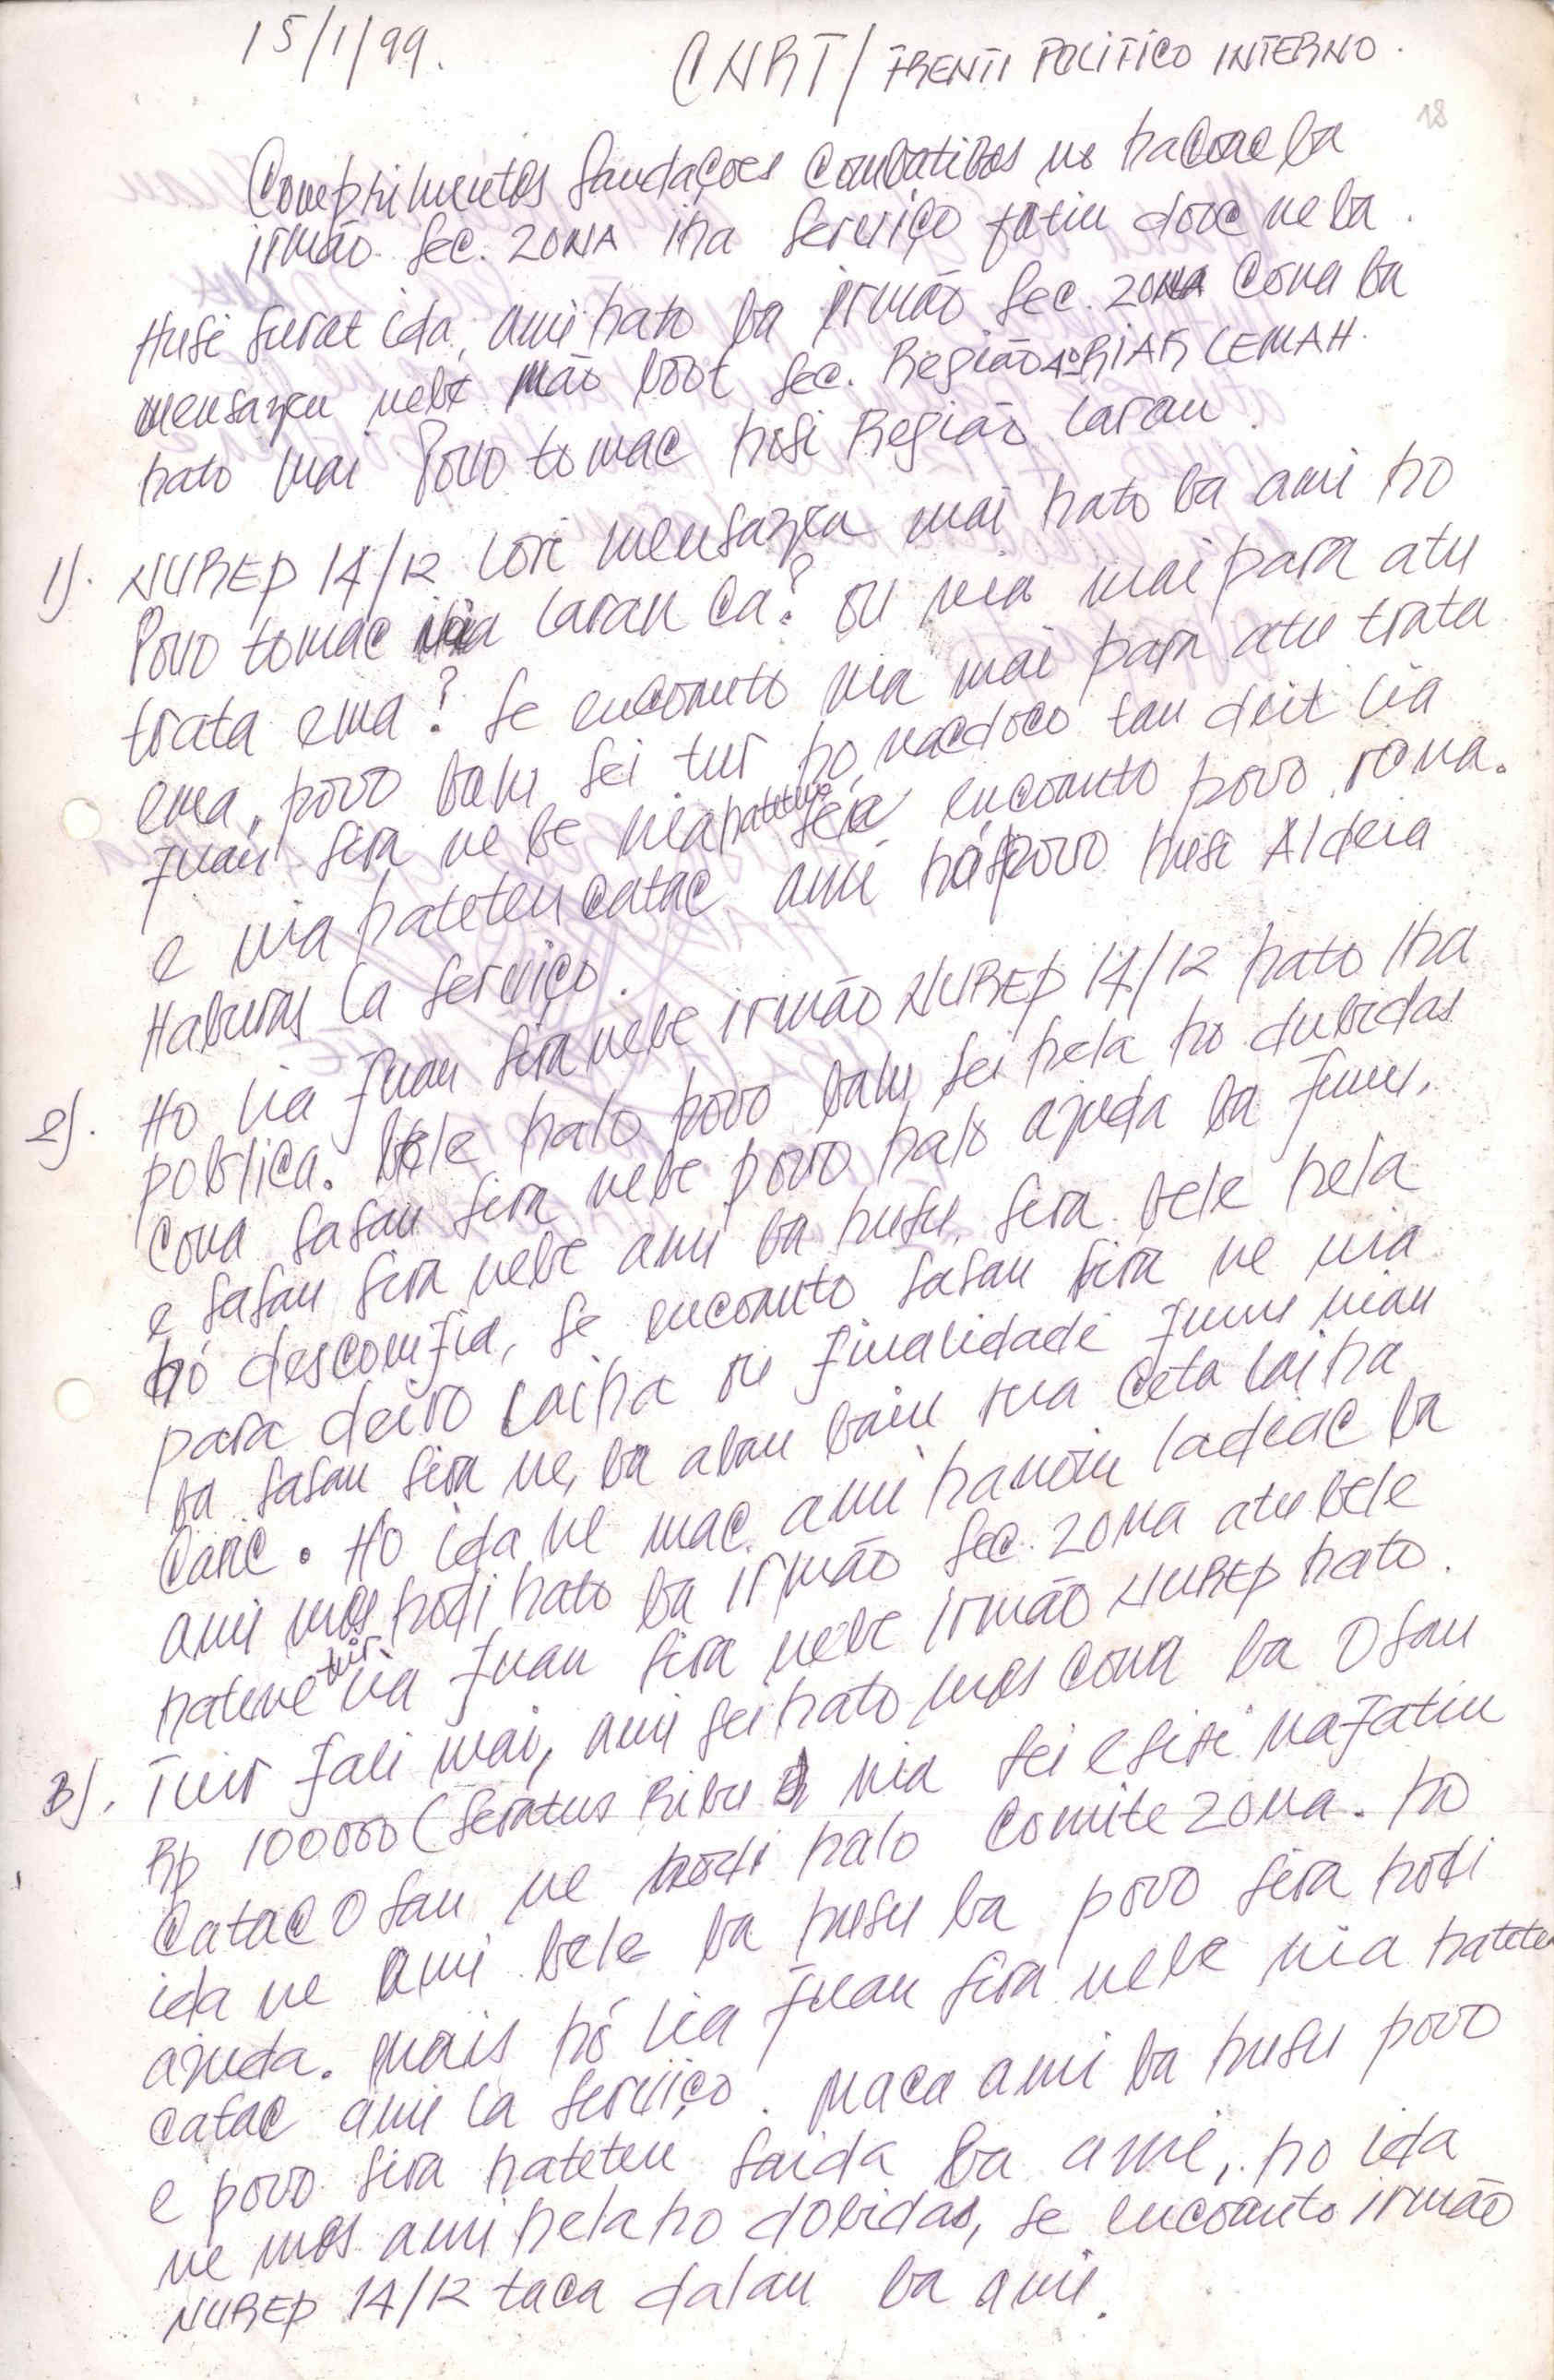 15/1/99.
CNRT / FRENTI POLITICO INTERNO.
18
Comprimentos Saudaçoes Combativos no hacoac ba
irmão Sec. ZONA iha serviço fatin dooc neba.
Husi surat ida, ami hato ba irmão Sec. ZONA Cona ba
mensazen nebe Mão boot Sec. Região A RIAK LEMAH.
hato mai Povo tomac hosi Região laran.
1). NUREP 14/12 lori mensazen mai hato ba ami ho
Povo tomac iha laran ca? ou nia mai para atu
trata ema? Se encoanto nia mai para atu trata
ema, povo balu sei tur ho nacdoco tan deit lia
fuan sira ne be nia hateten sei encoanto povo rona.
e nia hateten catac ami ho povo husi Aldeia
Haburas la serviço.
2). Ho lia fuan sira nebe irmão NUREP 14/12 hato iha
poblica. bele halo povo balu sei hela ho dubidas
cona sasan sira nebe povo halo ajuda ba funu,
e sasan sira nebe ami ba husu, sira bele hela
hó descomfia, se encoanto sasan sira ne nia
para deiro laiha ou finalidade funu nian
ba sasan sira ne, ba aban bain rua ceta laiha
Caric. Ho ida ne mac ami hanoin ladiac ba
ami mos hodi hato ba irmão Sec. Zona atu bele
hatene tuir lia fuan sira nebe irmão NUREP hato.
3). Tuir fali mai, ami sei hato mos cona ba Osan
Rp 100000 (Seratus Ribu nia sei esiri nafatin
Catac Osan ne hodi halo comite Zona. ho
ida ne ami bele ba husu ba povo sira hodi
ajuda. Mais hó lia fuan sira nebe nia hateten
catac ami la serviço. Maca ami ba husu povo
e povo sira hateten saida ba ami, ho ida
ne mos ami hela ho dobidas, se encoanto irmão
NUREP 14/12 taca dalan ba ami.